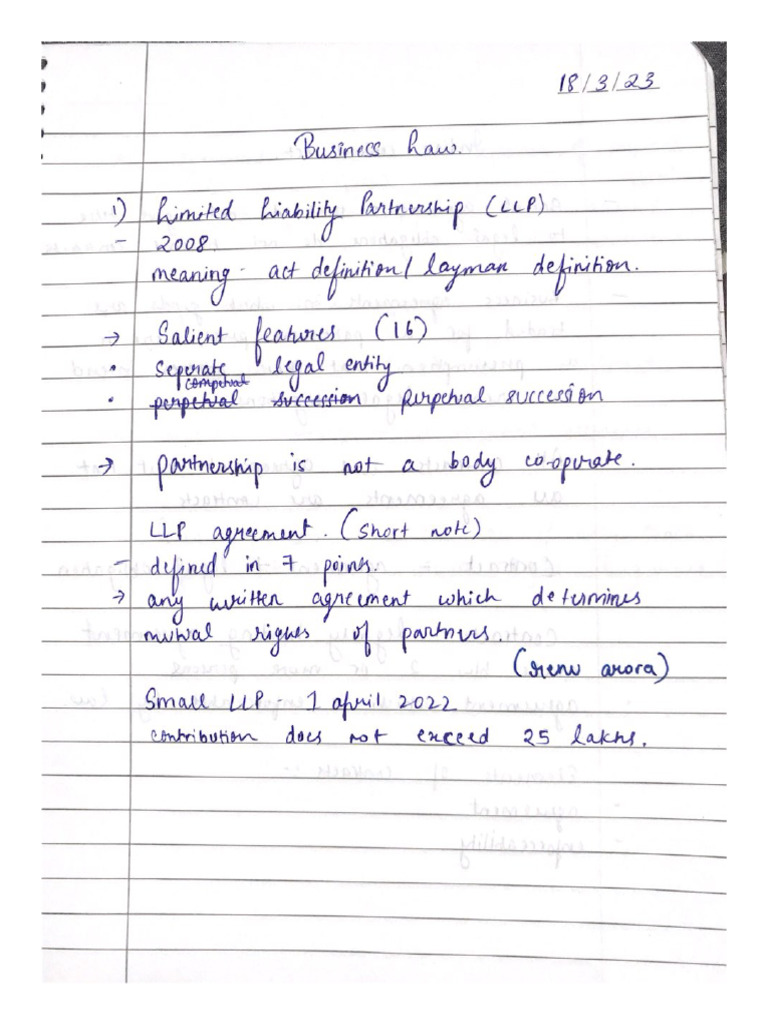 18/3/23
Business Law.
1) Limited Liability Partnership (LLP)
- 2008
meaning - act definition / layman definition.
→ Salient features (16)
• Seperate legal entity
competual
• perpetual succession perpetual succession
→ partnership is not a body co-operate.
LLP agreement. (short note)
- defined in 7 points.
→ any written agreement which determines
mutual rigues of partners.
(renu arora)
Small LLP - 1 april 2022
contribution does not exceed 25 lakhs.